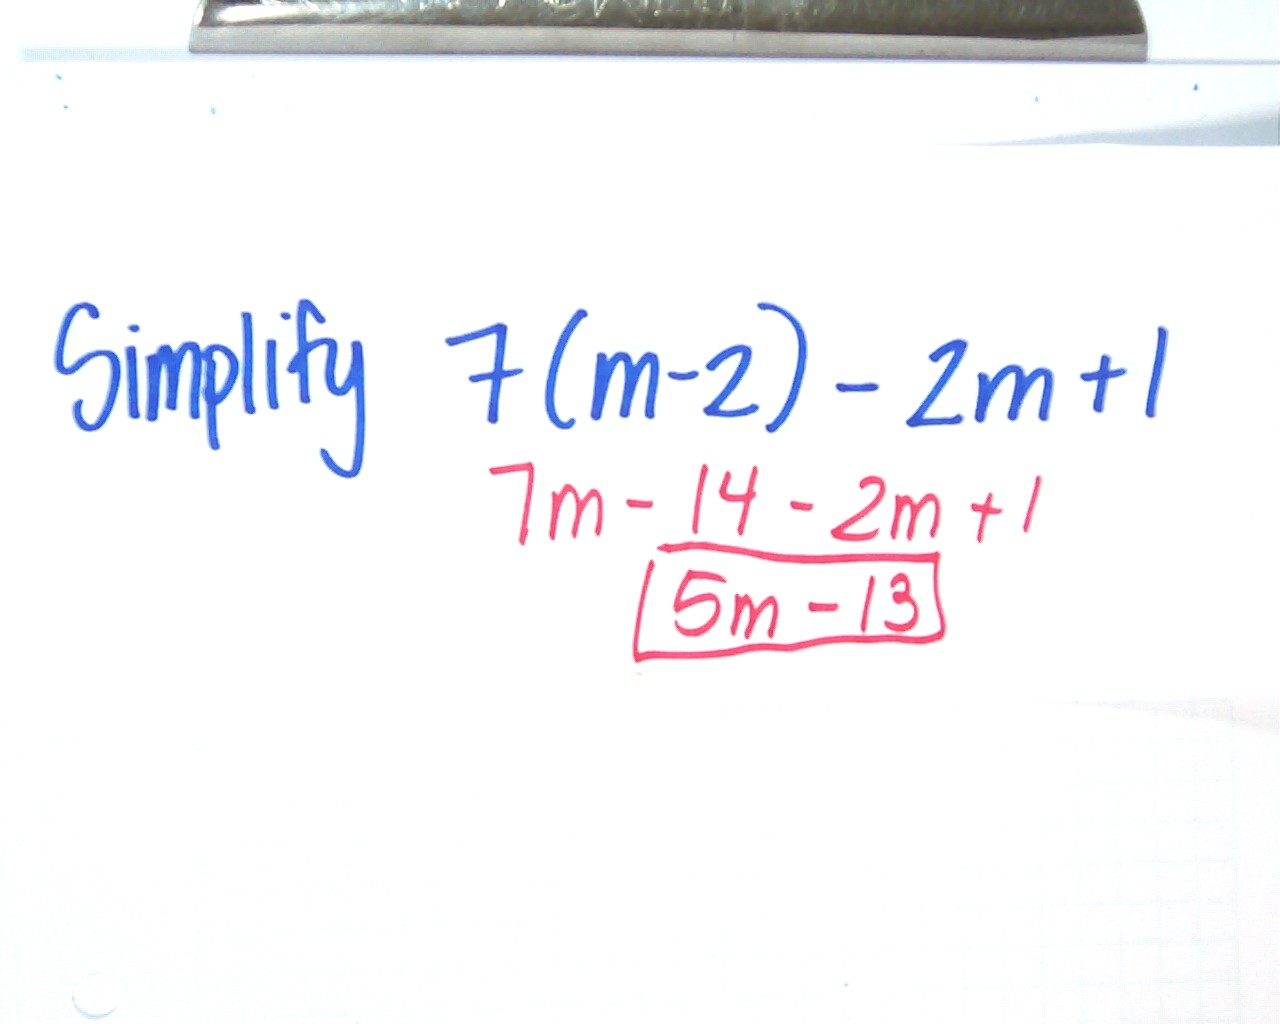 Simplify 7(m-2) - 2m + 1
7m - 14 - 2m + 1
5m - 13